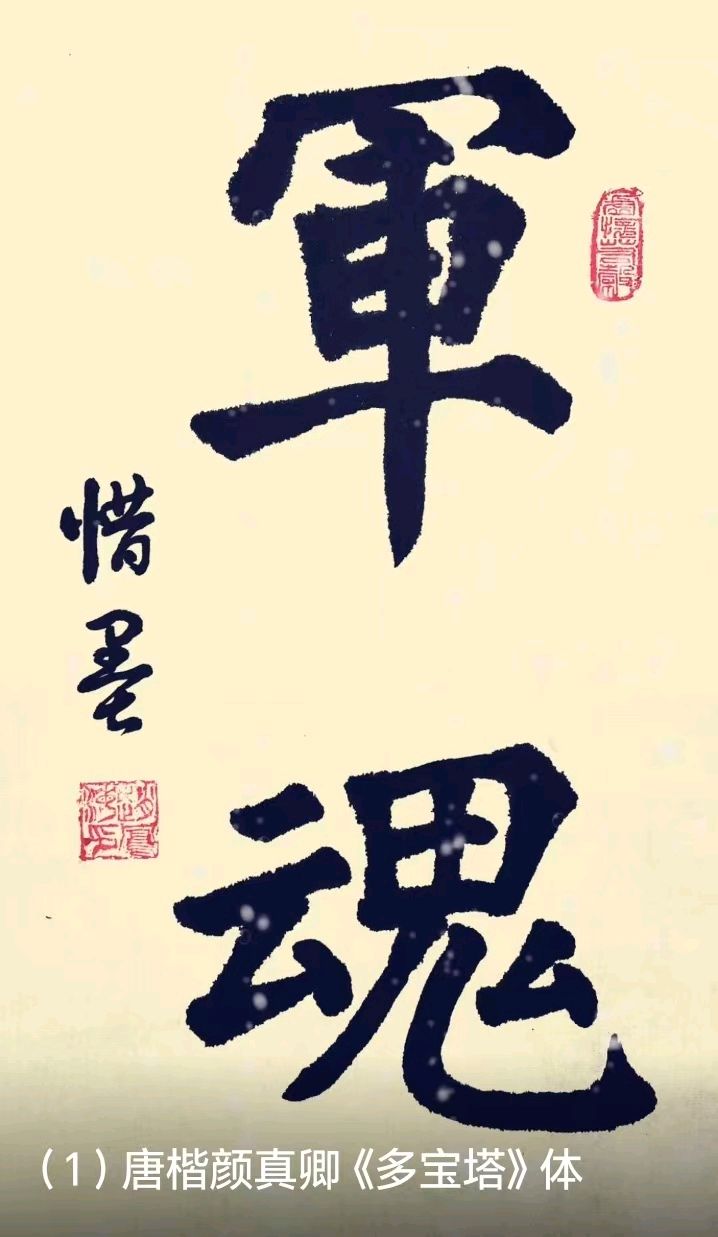 軍魂
惜墨
（1）唐楷颜真卿《多宝塔》体